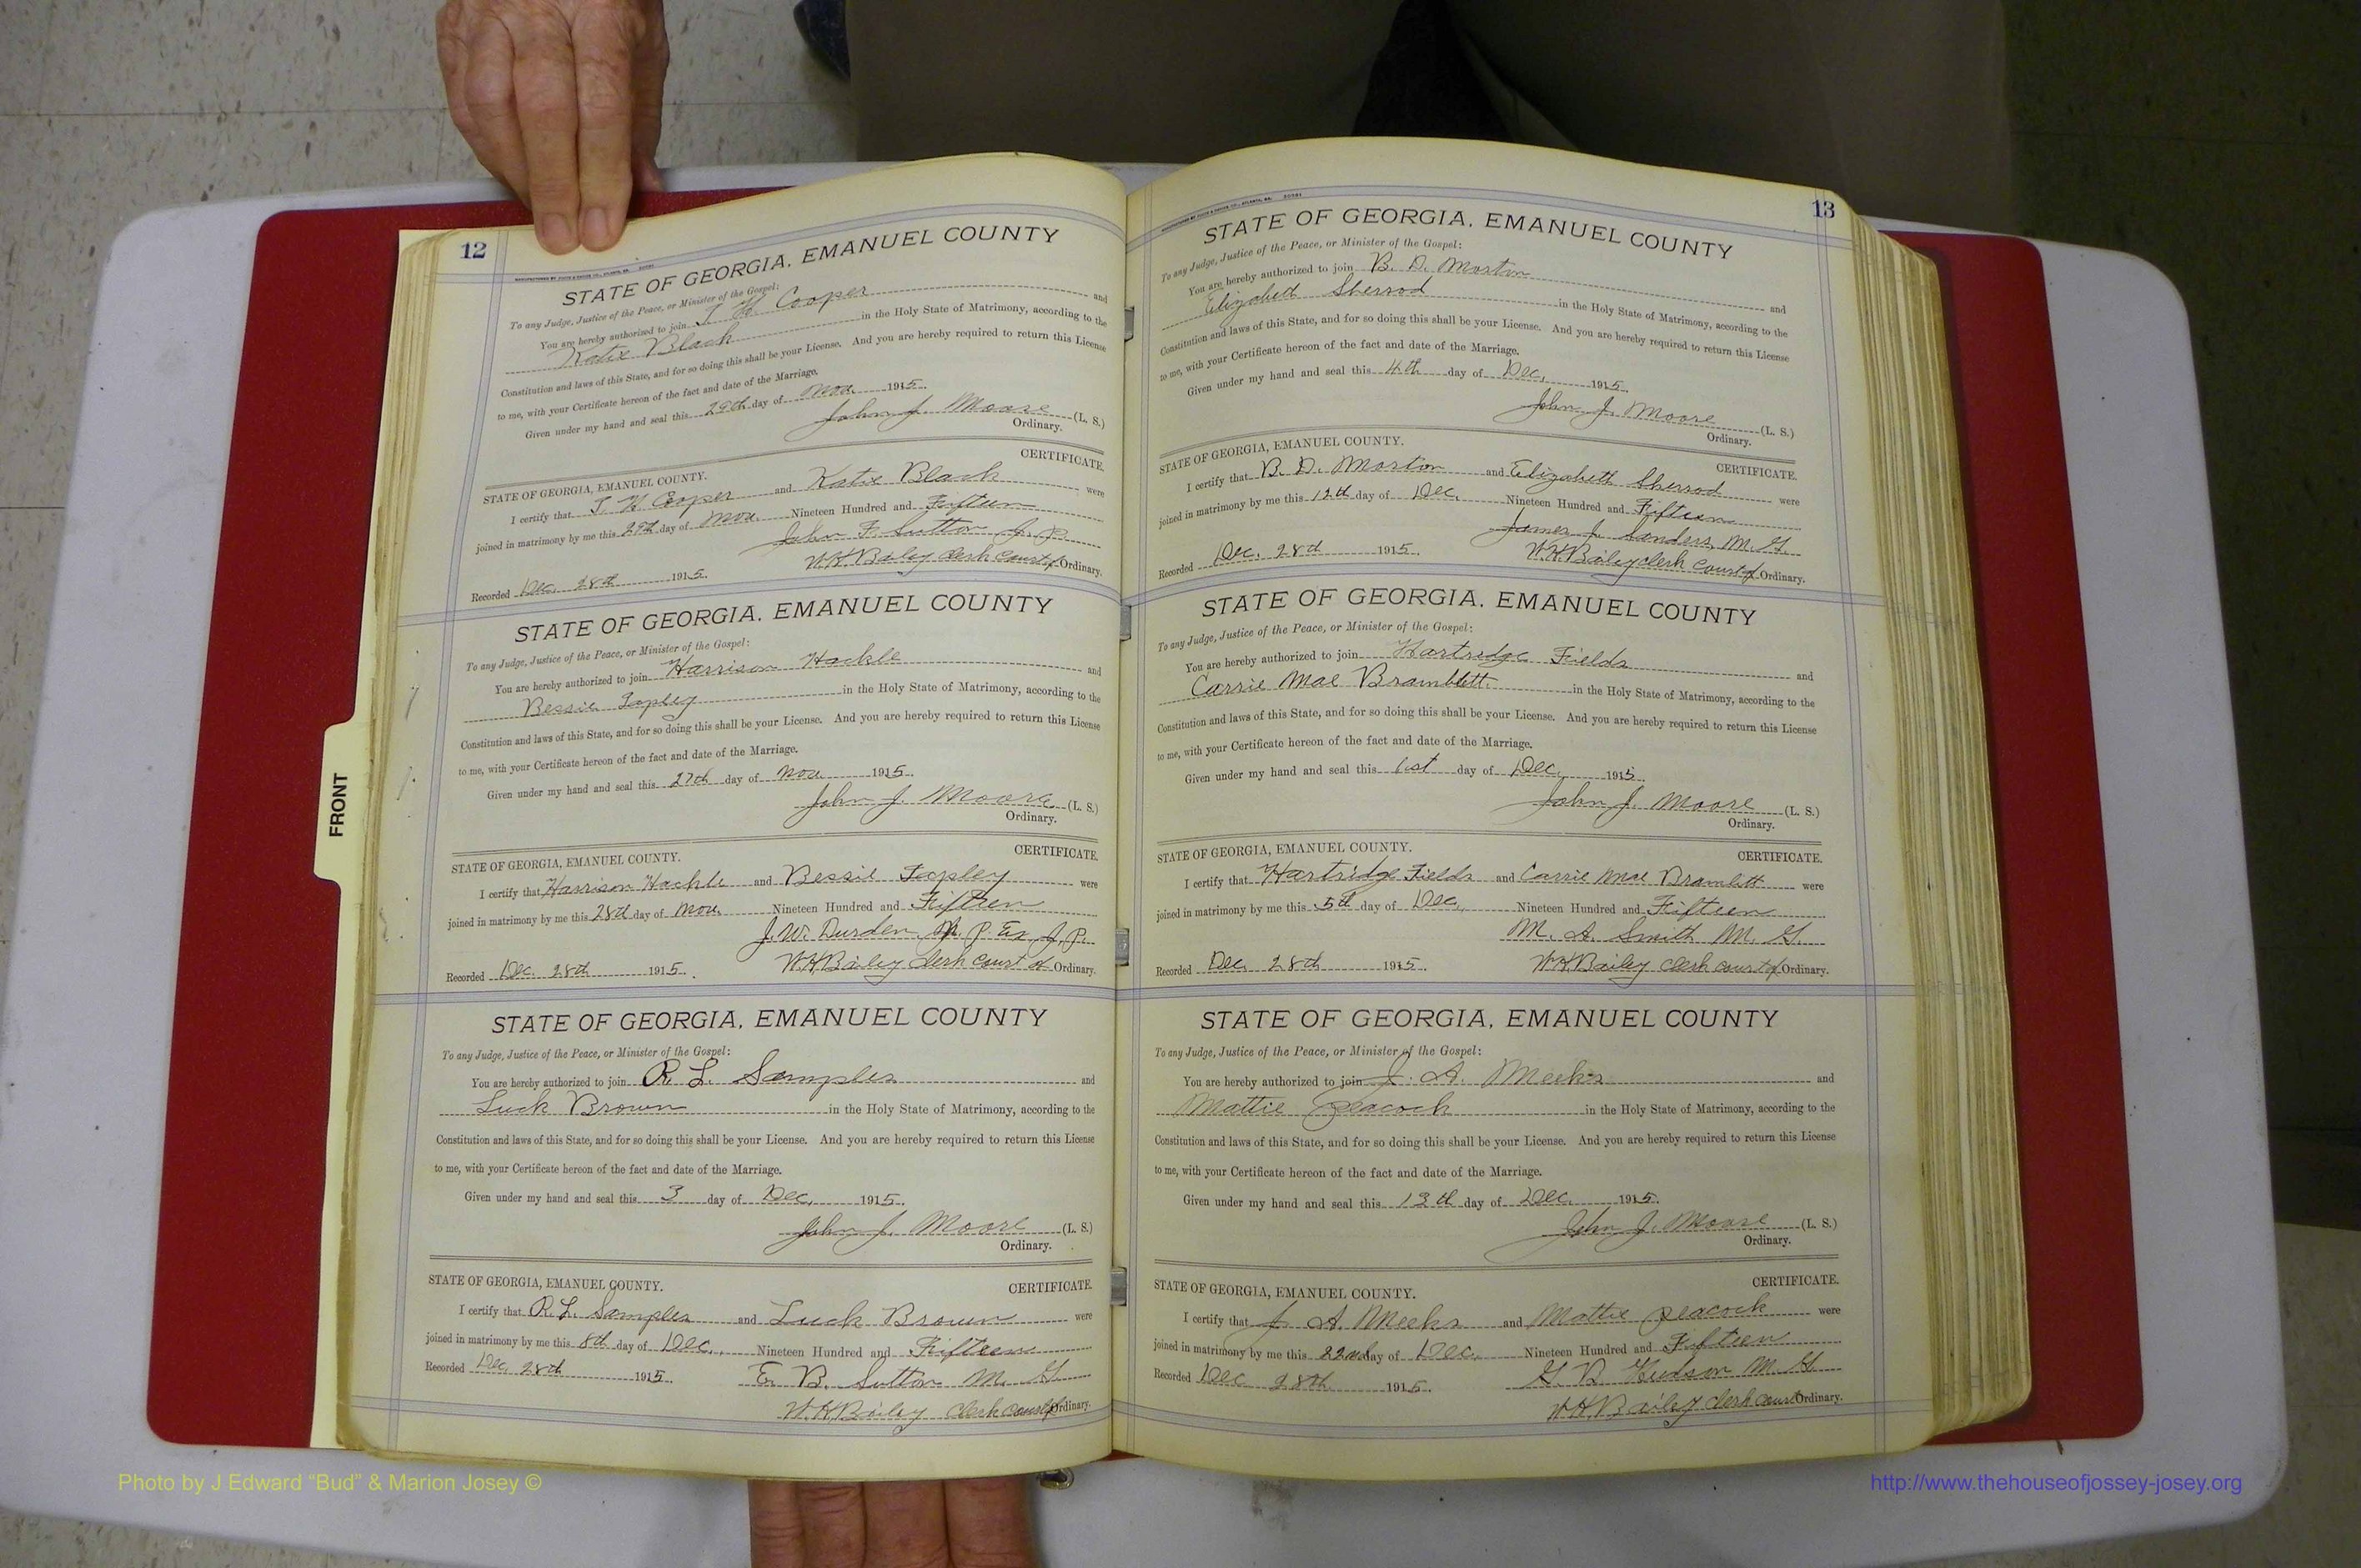 12
STATE OF GEORGIA, EMANUEL COUNTY
To any Judge, Justice of the Peace, or Minister of the Gospel:
You are hereby authorized to join Cooper and
Katie Black in the Holy State of Matrimony, according to the
Constitution and laws of this State, and for so doing this shall be your License. And you are hereby required to return this License
to me, with your Certificate hereon of the fact and date of the Marriage.
Given under my hand and seal this 29th day of Nov. 1915.
John J. Moore (L. S.)
Ordinary.
STATE OF GEORGIA, EMANUEL COUNTY. CERTIFICATE.
I certify that Cooper and Katie Black were
joined in matrimony by me this 29th day of Nov. Nineteen Hundred and Fifteen
John F. Sutton J. P.
Recorded Dec. 28th 1915. W.H. Bailey Clerk Court of Ordinary.
STATE OF GEORGIA, EMANUEL COUNTY
To any Judge, Justice of the Peace, or Minister of the Gospel:
You are hereby authorized to join Harrison Hackle and
Bessie Tapley in the Holy State of Matrimony, according to the
Constitution and laws of this State, and for so doing this shall be your License. And you are hereby required to return this License
to me, with your Certificate hereon of the fact and date of the Marriage.
Given under my hand and seal this 27th day of Nov. 1915.
John J. Moore (L. S.)
Ordinary.
STATE OF GEORGIA, EMANUEL COUNTY. CERTIFICATE.
I certify that Harrison Hackle and Bessie Tapley were
joined in matrimony by me this 28th day of Nov. Nineteen Hundred and Fifteen
J. W. Durden, N. P. Ex J. P.
Recorded Dec. 28th 1915. W.H. Bailey Clerk Court of Ordinary.
STATE OF GEORGIA, EMANUEL COUNTY
To any Judge, Justice of the Peace, or Minister of the Gospel:
You are hereby authorized to join R. L. Samples and
Luck Brown in the Holy State of Matrimony, according to the
Constitution and laws of this State, and for so doing this shall be your License. And you are hereby required to return this License
to me, with your Certificate hereon of the fact and date of the Marriage.
Given under my hand and seal this 3 day of Dec. 1915.
John J. Moore (L. S.)
Ordinary.
STATE OF GEORGIA, EMANUEL COUNTY. CERTIFICATE.
I certify that R. L. Samples and Luck Brown were
joined in matrimony by me this 8th day of Dec. Nineteen Hundred and Fifteen
Recorded Dec. 28th 1915. E. B. Sutton M. G.
W.H. Bailey Clerk Court of Ordinary.
FRONT
13
STATE OF GEORGIA, EMANUEL COUNTY
To any Judge, Justice of the Peace, or Minister of the Gospel:
You are hereby authorized to join B. D. Morton and
Elizabeth Sherrod in the Holy State of Matrimony, according to the
Constitution and laws of this State, and for so doing this shall be your License. And you are hereby required to return this License
to me, with your Certificate hereon of the fact and date of the Marriage.
Given under my hand and seal this 4th day of Dec. 1915.
John J. Moore (L. S.)
Ordinary.
STATE OF GEORGIA, EMANUEL COUNTY. CERTIFICATE.
I certify that B. D. Morton and Elizabeth Sherrod were
joined in matrimony by me this 12th day of Dec. Nineteen Hundred and Fifteen
James J. Sanders, M. G.
Recorded Dec. 28th 1915. W.H. Bailey Clerk Court of Ordinary.
STATE OF GEORGIA, EMANUEL COUNTY
To any Judge, Justice of the Peace, or Minister of the Gospel:
You are hereby authorized to join Hartridge Fields and
Carrie Mae Bramblett in the Holy State of Matrimony, according to the
Constitution and laws of this State, and for so doing this shall be your License. And you are hereby required to return this License
to me, with your Certificate hereon of the fact and date of the Marriage.
Given under my hand and seal this 1st day of Dec. 1915.
John J. Moore (L. S.)
Ordinary.
STATE OF GEORGIA, EMANUEL COUNTY. CERTIFICATE.
I certify that Hartridge Fields and Carrie Mae Bramlett were
joined in matrimony by me this 5th day of Dec. Nineteen Hundred and Fifteen
M. A. Smith M. G.
Recorded Dec. 28th 1915. W.H. Bailey Clerk Court of Ordinary.
STATE OF GEORGIA, EMANUEL COUNTY
To any Judge, Justice of the Peace, or Minister of the Gospel:
You are hereby authorized to join J. A. Meeks and
Mattie Peacock in the Holy State of Matrimony, according to the
Constitution and laws of this State, and for so doing this shall be your License. And you are hereby required to return this License
to me, with your Certificate hereon of the fact and date of the Marriage.
Given under my hand and seal this 13th day of Dec. 1915.
John J. Moore (L. S.)
Ordinary.
STATE OF GEORGIA, EMANUEL COUNTY. CERTIFICATE.
I certify that J. A. Meeks and Mattie Peacock were
joined in matrimony by me this 22nd day of Dec. Nineteen Hundred and Fifteen
Recorded Dec 28th 1915. Hudson M. G.
W.H. Bailey Clerk Court Ordinary.
Photo by J Edward “Bud” & Marion Josey ©
http://www.thehouseofjossey-josey.org